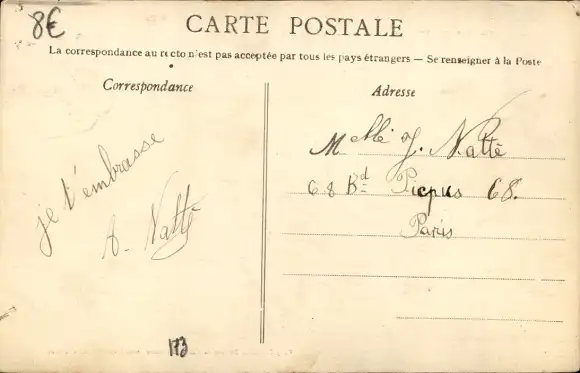 8€
CARTE POSTALE
La correspondance au recto n'est pas acceptée par tous les pays étrangers — Se renseigner à la Poste
Correspondance
Adresse
je t'embrasse
A. Natté
Melle J. Natté
68 Bd Picpus 68.
Paris
173